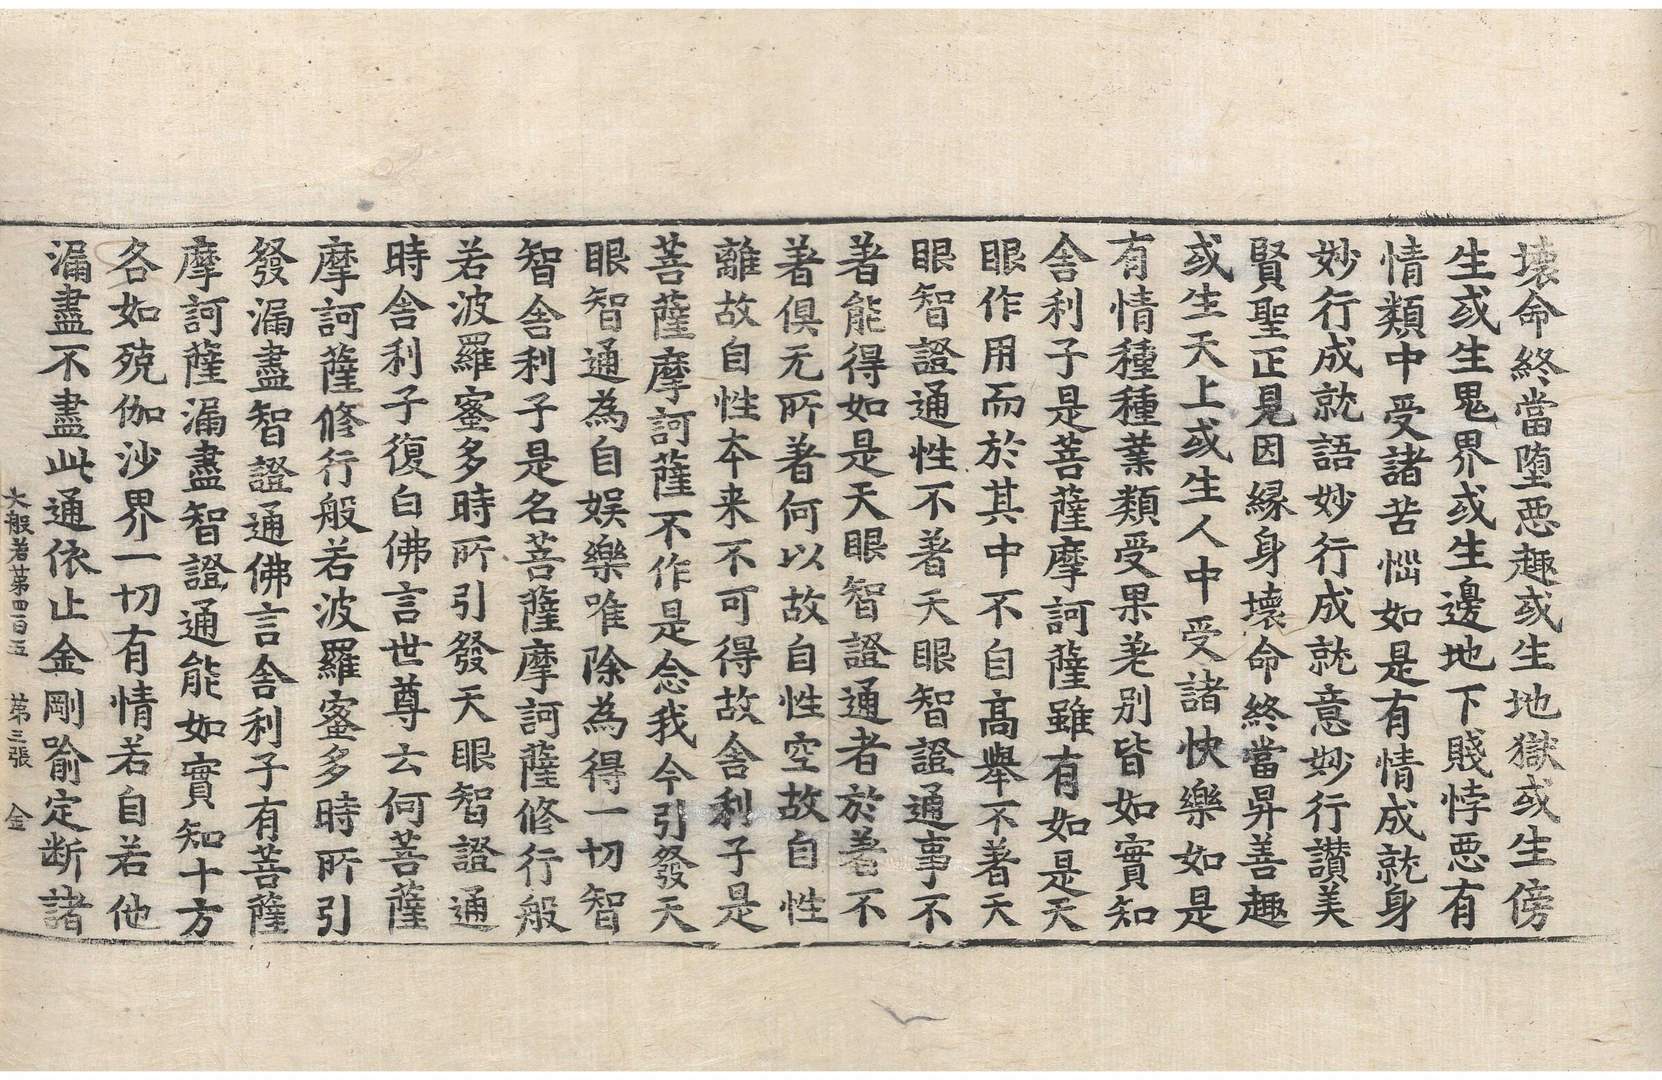 壞命終當堕惡趣或生地獄或生傍
生或生鬼界或生邊地下賤悖惡有
情類中受諸苦惱如是有情成就身
妙行成就語妙行成就意妙行讃美
賢聖正見因縁身壞命終當昇善趣
或生天上或生人中受諸快樂如是
有情種種業類受果差別皆如實知
舎利子是菩薩摩訶薩雖有如是天
眼作用而於其中不自高舉不著天
眼智證通性不著天眼智證通事不
著能得如是天眼智證通者於著不
著俱无所著何以故自性空故自性
離故自性夲来不可得故舎利子是
菩薩摩訶薩不作是念我今引發天
眼智通為自娯樂唯除為得一切智
智舎利子是名菩薩摩訶薩修行般
若波羅蜜多時所引發天眼智證通
時舎利子復白佛言世尊云何菩薩
摩訶薩修行般若波羅蜜多時所引
發漏盡智證通佛言舎利子有菩薩
摩訶薩漏盡智證通能如實知十方
各如殑伽沙界一切有情若自若他
漏盡不盡此通依止金剛喻定断諸
大般若第四百五 第三張 金